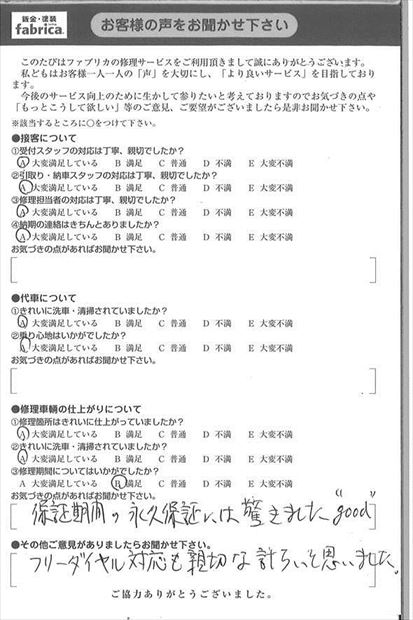 鈑金・塗装
fabrica.
お客様の声をお聞かせ下さい
このたびはファブリカの修理サービスをご利用頂きまして誠にありがとうございます。
私どもはお客様一人一人の「声」を大切にし、「より良いサービス」を目指しており
ます。
今後のサービス向上のために生かして参りたいと考えておりますのでお気づきの点や
「もっとこうして欲しい」等のご意見、ご要望がございましたら是非お聞かせ下さい。
※該当するところに○をつけて下さい。
●接客について
①受付スタッフの対応は丁寧、親切でしたか?
A 大変満足している B 満足 C 普通 D 不満 E 大変不満
②引取り・納車スタッフの対応は丁寧、親切でしたか?
A 大変満足している B 満足 C 普通 D 不満 E 大変不満
③修理担当者の対応は丁寧、親切でしたか?
A 大変満足している B 満足 C 普通 D 不満 E 大変不満
④納期の連絡はきちんとありましたか?
A 大変満足している B 満足 C 普通 D 不満 E 大変不満
お気づきの点があればお聞かせ下さい。
●代車について
①きれいに洗車・清掃されていましたか?
A 大変満足している B 満足 C 普通 D 不満 E 大変不満
②乗り心地はいかがでしたか?
A 大変満足している B 満足 C 普通 D 不満 E 大変不満
お気づきの点があればお聞かせ下さい。
●修理車輌の仕上がりについて
①修理箇所はきれいに仕上がっていましたか?
A 大変満足している B 満足 C 普通 D 不満 E 大変不満
②きれいに洗車・清掃されていましたか?
A 大変満足している B 満足 C 普通 D 不満 E 大変不満
③修理期間についてはいかがでしたか?
A 大変満足している B 満足 C 普通 D 不満 E 大変不満
お気づきの点があればお聞かせ下さい。
保証期間の永久保証には驚きました"good"
●その他ご意見がありましたらお聞かせ下さい。
フリーダイヤル対応も親切な計らいと思いました。
ご協力ありがとうございました。